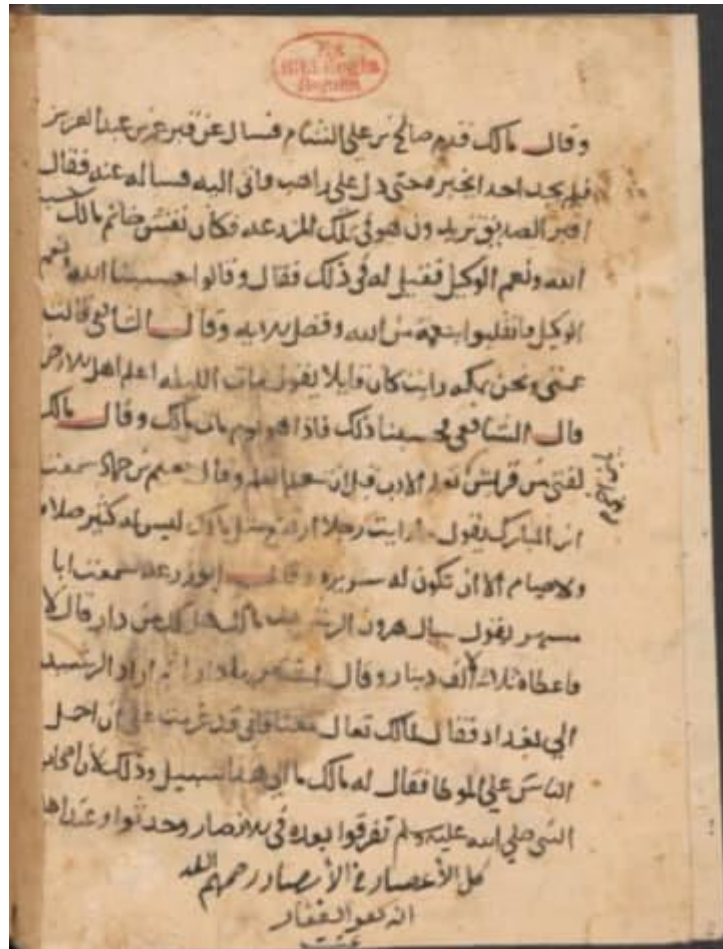 وقال مالك قدم صالح بن علي الشام فسال عن قبر عمر بن عبد العزيز
فلم يجد احدا يخبره حتى دل على راهب فاتى اليه فساله عنه فقال
اقبر الصديق تريدون هو في تلك المزرعه فكان نقش خاتم مالك حسبي
الله ونعم الوكيل فقيل له في ذلك فقال وقالوا حسبنا الله ونعم
الوكيل فانقلبوا بنعمة من الله وفضل الايه وقال الشافعي قالت
عمتي ونحن بمكه رايت كان قايلا يقول مات الليله اعلم اهل الارض
قال الشافعي فحسبنا ذلك فاذا هو يوم مات مالك وقال مالك
لفتى من قريش تعلم الادب قبل ان وقال نعيم بن حماد سمعت
ابن المبارك يقول ما رايت رجلا ارتفع مثل مالك ليس له كثير صلاه
ولا صيام الا ان تكون له سريره وقال ابو زرعه سمعت ابا
مسهر يقول سال هرون الرشيد مالك هل لك من دار قال لا
فاعطاه ثلاثة الف دينار وقال اشتر بها دارا ثم اراد الرشيد
الي بغداد فقال لمالك تعال معنا فاني قد عزمت على ان احمل
الناس علي الموطا فقال له مالك ما الي هذا سبيل وذلك لان اصحاب
النبي صلي الله عليه وسلم تفرقوا بعده في الامصار وحدثوا وعند اهل
كل الأعصار في الأمصار رحمهم الله
انه هو الغفار